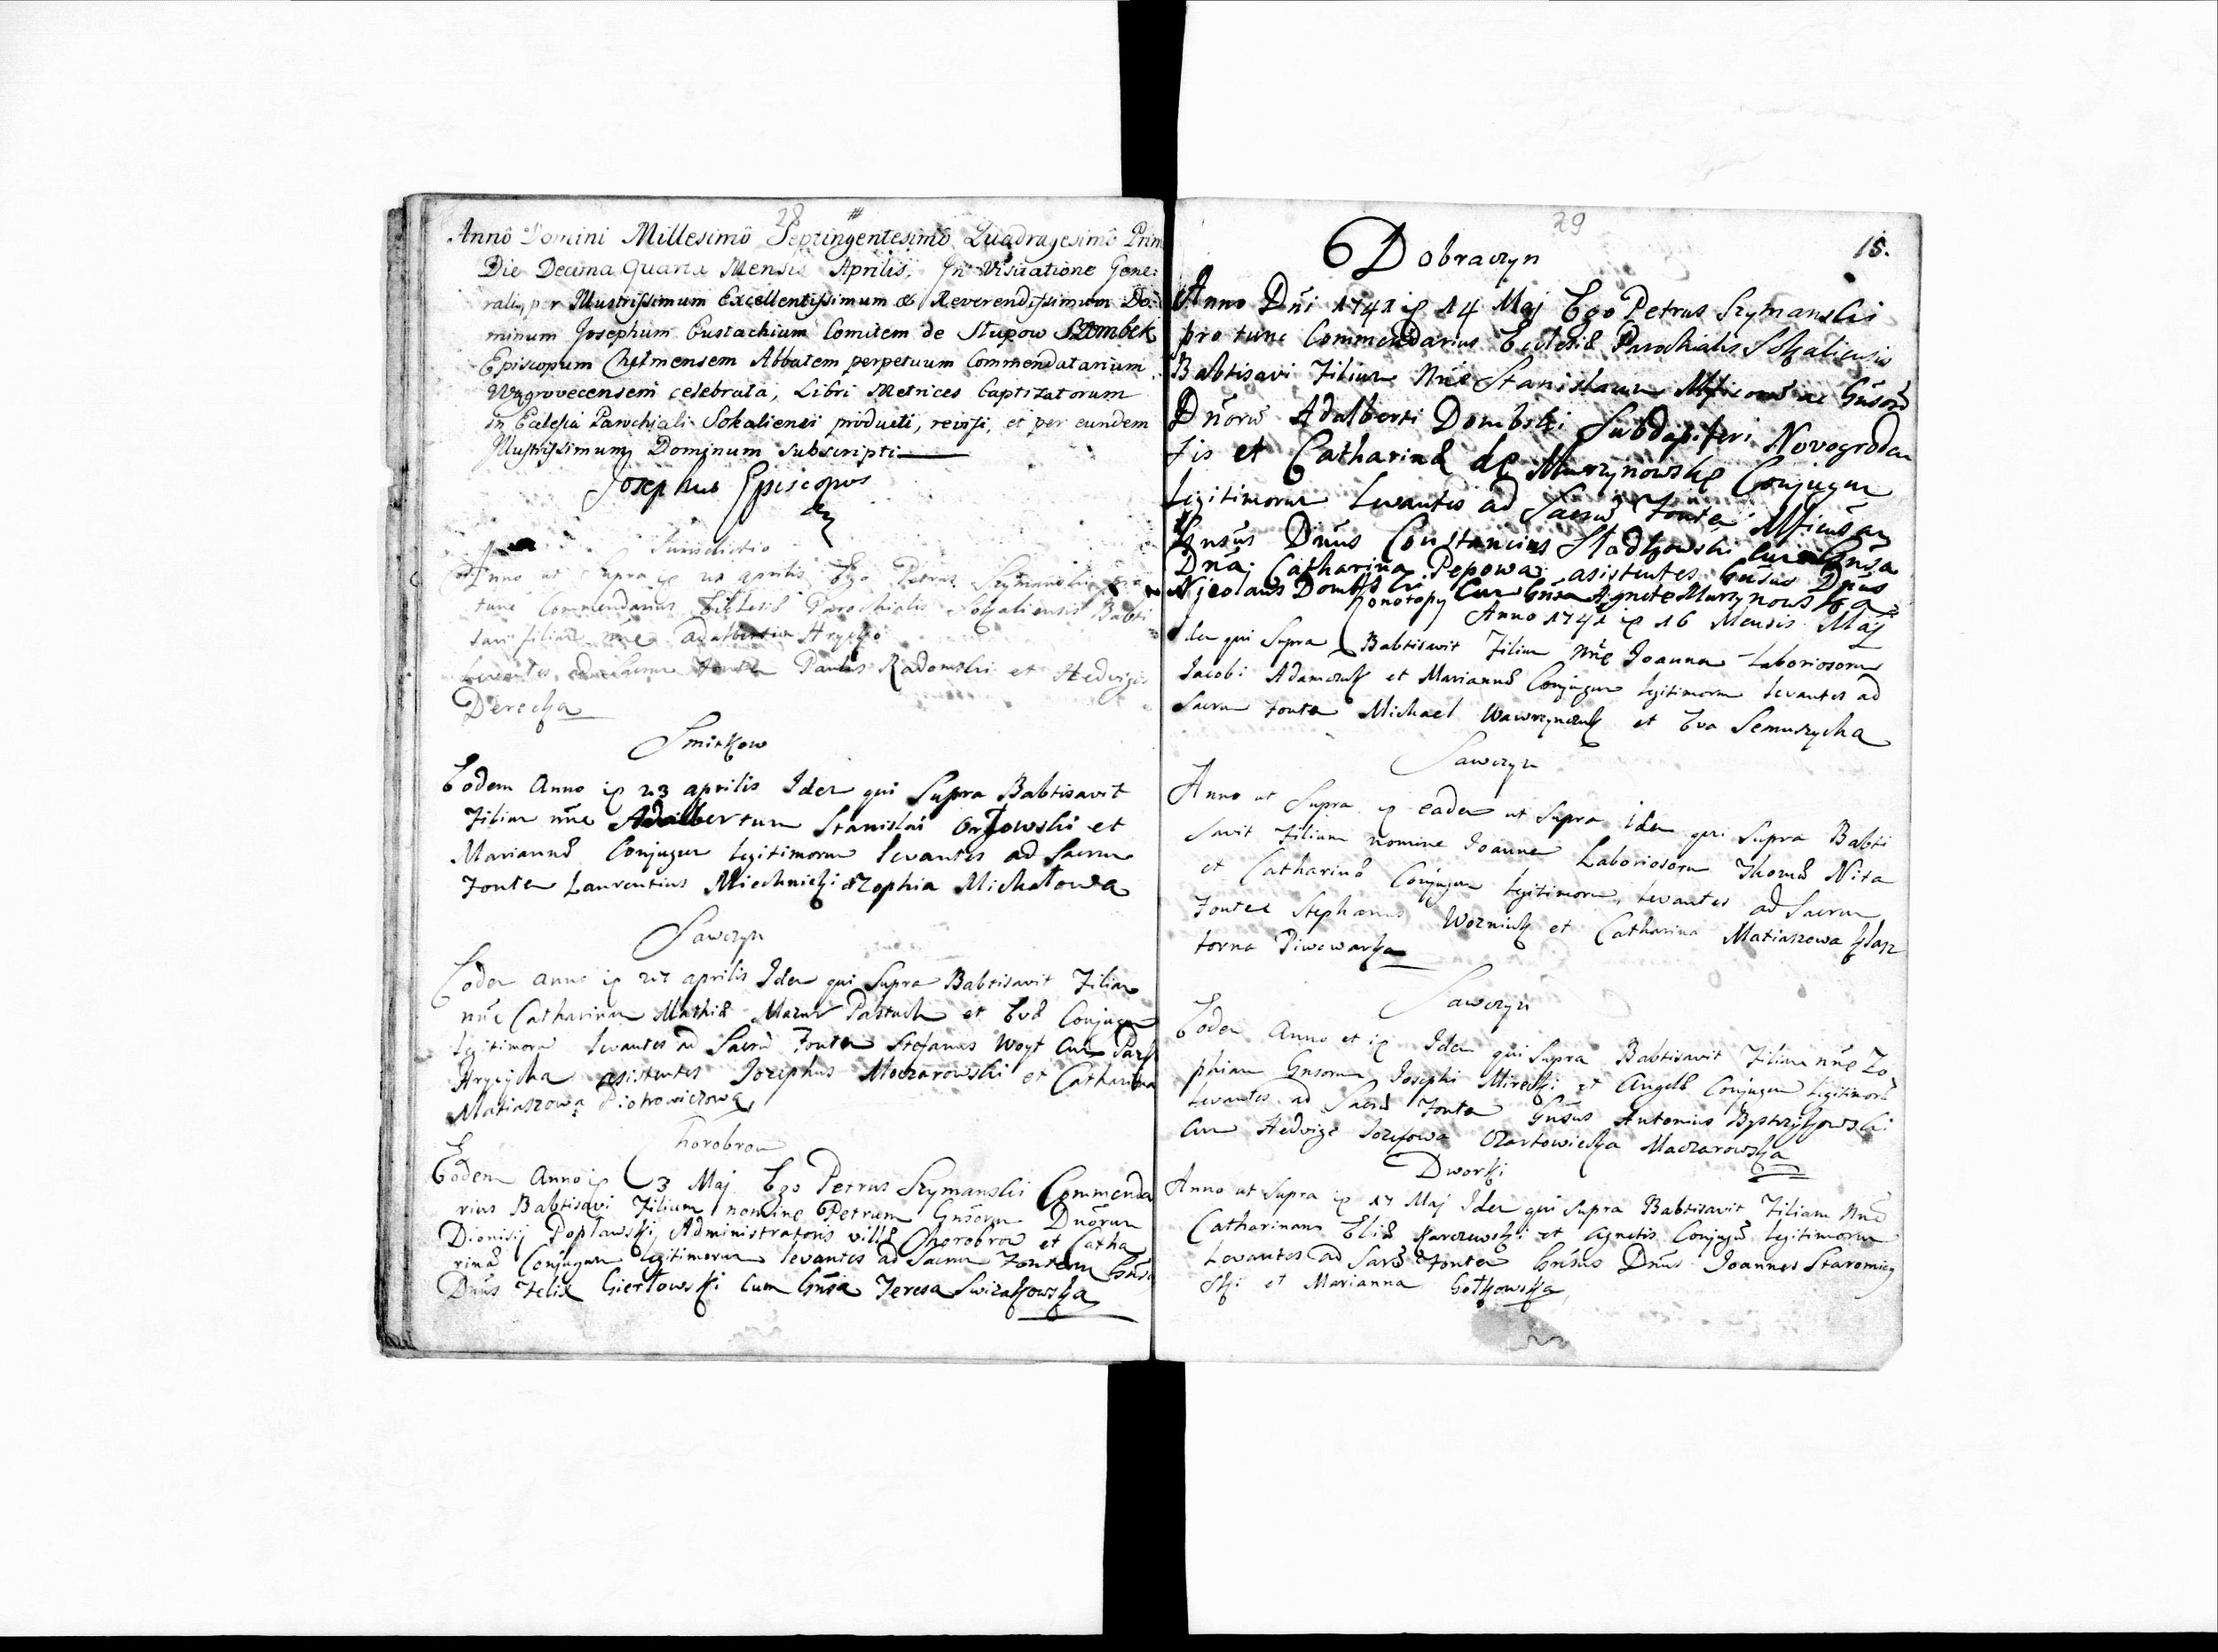 28 #
Annô Domini Millesimô Septingentesimô Quadragesimô Prim
Die Decima Quarta Mensis Aprilis, In Visitatione Gene:
rali, per Illustrissimum Excellentissimum & Reverendissimum Do:
minum Josephum Eustachium Comitem de Słupow Szembek
Episcopum Chełmensem Abbatem perpetuum Commendatarium
Wągrovecensem celebrata, Libri Metrices baptizatorum
in Ecclesia Parochiali Sokaliensi producti, revisi, et per eundem
Illustrissimum Dominum subscripti
Josephus Episcopus
Jurisdictio
Anno ut Supra aprilis Ego Petrus Szymanski pro
tunc Commendarius Eclesiæ Parochialis Sokaliensis Babti
savi filium nne
Levantes ad Sacrum Fontem Paulus Radomski et Hedvigis
Derecka
Smitkow
Eodem Anno 23 aprilis Idem qui Supra Babtisavit
Filium nne Adalbertum Stanislai Orłowski et
Mariannæ Conjugum legitimorum levantes ad Sacrum
Fontem Laurentius Miechnicki Zophia Michałowa
Sawczyn
Eodem anno 27 aprilis Idem qui Supra Babtisavit Filiam
nne Catharinam Mathiæ Mazur Pastuch et Evæ Conjugum
legitimorum levantes ad Sacrum Fontem Stefanus Woyt Cum
Hrycycha asistentes Josephus Maczarowski et Catharina
Matiaszowa Piotrowiczowa
Chorobrow
Eodem Anno 3 Maj Ego Petrus Szymanski Commenda
rius Babtisavi Filium nomine Petrum Gnsorum Dnorum
Dionisij Popławski Administratoris villæ Chorobrow et Catha
rinæ Conjugum legitimorum levantes ad Sacrum Fontem Gnsus
Dnus Felix Giertowski Cum Gnsa Teresa
29
15.
Dobraczyn
Anno Dni 1741 14 Maj Ego Petrus Szymanski
pro tunc Commendarius Eclesiæ Parochialis Sokaliensis
Babtisavi Filium nne Stanislaum ac Gnsorum
Dnorum Adalberti Dombski Subdapiferi Novogroden
sis et Catharinæ de Murzynowskie Conjugum
legitimorum Levantes ad Sacrum Fontem
Gnsus Dnus Constancius Stadkowski Cum Gnsa
Dna Catharina Pepowa asistentes Gnsus Dnus
Nicolaus Dombski Cum Gnsa Agnete Murzynowska
Konotopy Anno 1741 16 Mensis Maj
Idem qui Supra Babtisavit Filium nne Joannem Laboriosorum
Jacobi Adamczuk et Mariannæ Conjugum legitimorum levantes ad
Sacrum Fontem Michael Wawrzynczuk et Eva Semuszycha
Sawczyn
Anno ut Supra eadem ut Supra idem qui Supra Babti
savit Filium nomine Joannem Laboriosorum Thomæ Nita
et Catharinæ Conjugum legitimorum, levantes ad Sacrum
Fontem Stephanus Wozniuk et Catharina Matiaszowa
torna Piwowarka
Sawczyn
Eodem Anno et Idem qui Supra Babtisavit Filiam nne Zo
phiam Gnsorum Josephi Mirecki et Angelæ Conjugum legitimorum
levantes ad Sacrum Fontem Gnsus Antonius Bystrzykowski
Cum Hedvige Jozefowa Czartowiecka Maczarowska
Dworki
Anno ut Supra 17 Maj Idem qui Supra Babtisavit Filiam nne
Catharinam Eliæ Karczewski et Agnetis Conjugum legitimorum
Levantes ad Sacrum Fontem Gnsus Dnus Joannes Staromiey
ski et Marianna Gotkowska